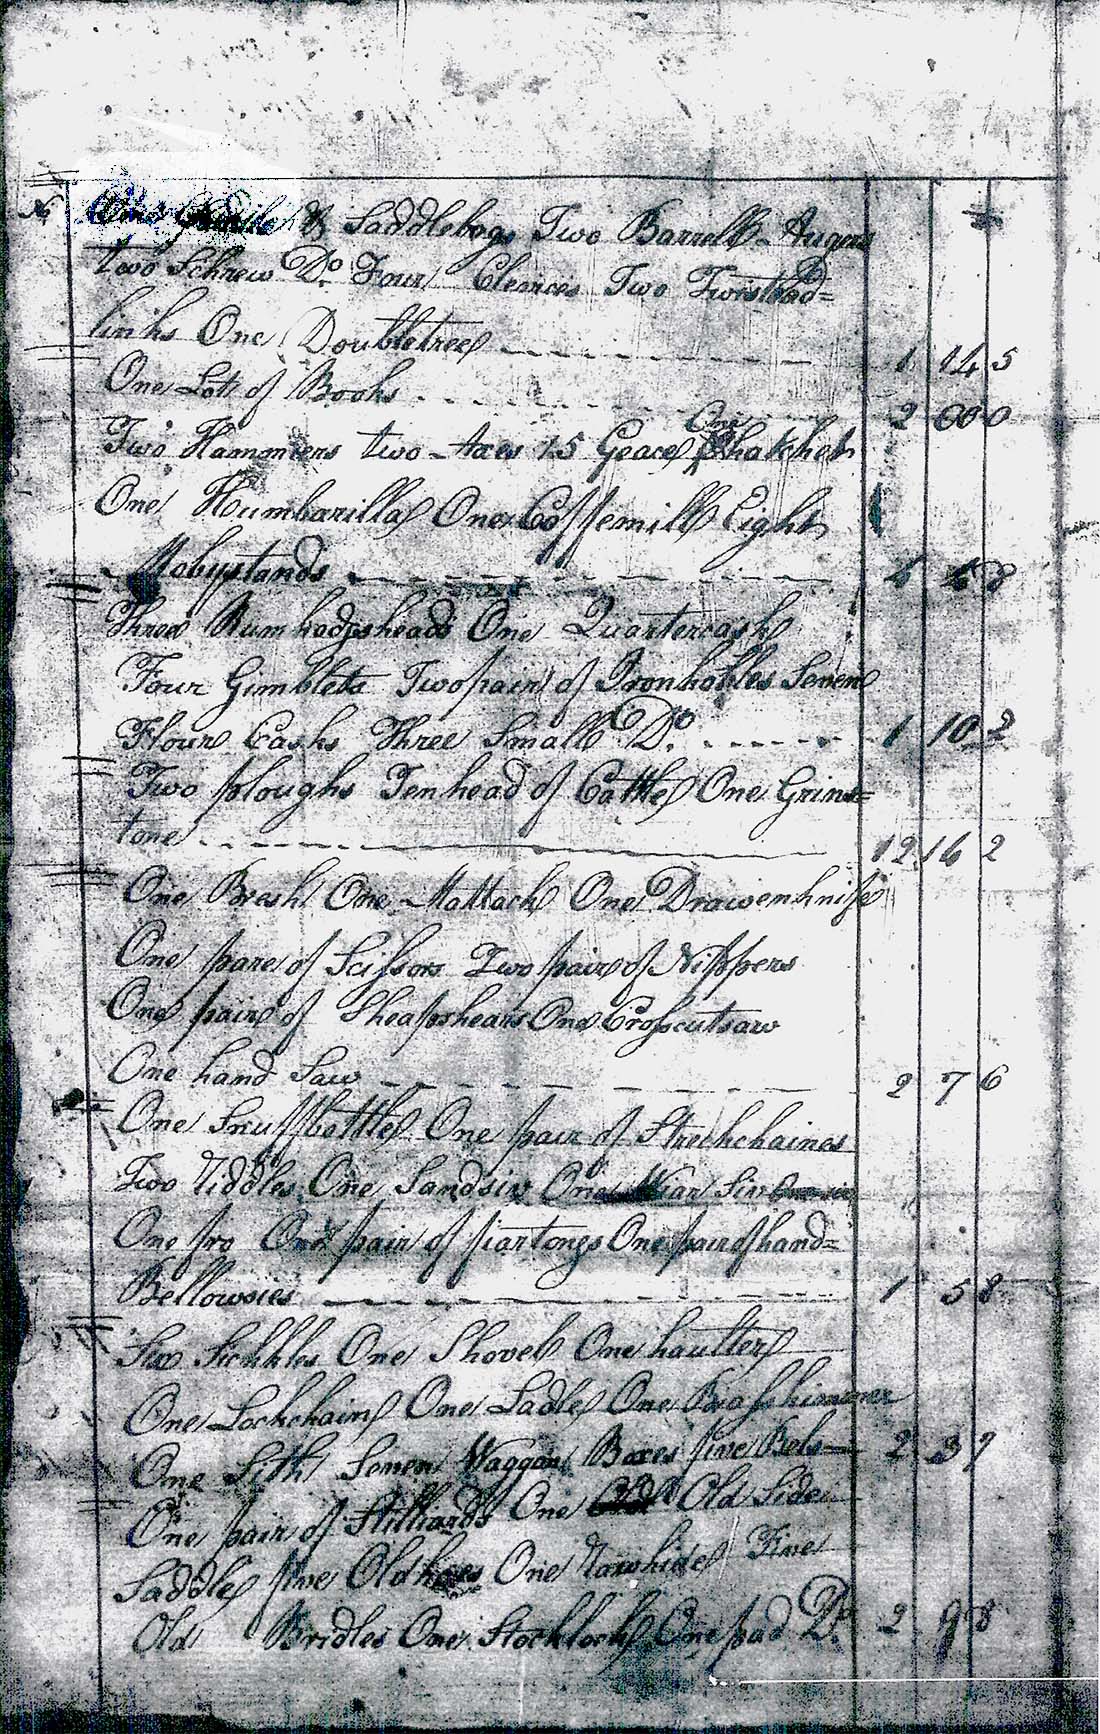 One Saddle & Saddlebags Two Barrell Augers
two Schrew Do. Four Clevices Two Twistead=
links One Doubletree 1 14 5
One Lott of Books 2 00 0
Two Hammers two Axes 15 Geace One hatchet
One Humbarilla One Coffemill Eight
Mobystands 8
Three Rum hodgsheads One Quartercask
Four Gimblets Two pair of Ironhobbles Seven
Flour Casks Three Small Do. 1 10 2
Two ploughs Tenhead of Cattle One Grins=
tone 12 16 2
One Bresh One Mattack One Drawenknife
One pare of Scissors Two pair of Nippers
One pair of Sheapshears One Crosscutsaw
One hand Saw 2 7 6
One Snuffbottle One pair of Strechchaines
Two riddles One Sandsiv One Siv
One pro One pair of fiartongs One pair of hand=
Bellowsies 1 5 8
Six Sickkles One Shovel One haulter
One Lockchain One Ladle One Brasskimmer
One Sith Seven Waggon Boxes five Bels 2 3 9
One pair of Stilliards One Old Side
Saddle five Old hoes One rawhide Five
Old Bridles One Stocklock One pad Do. 2 9 8